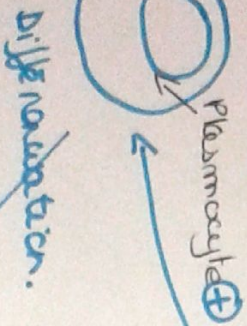 Plasmocyte +
Différenciation.